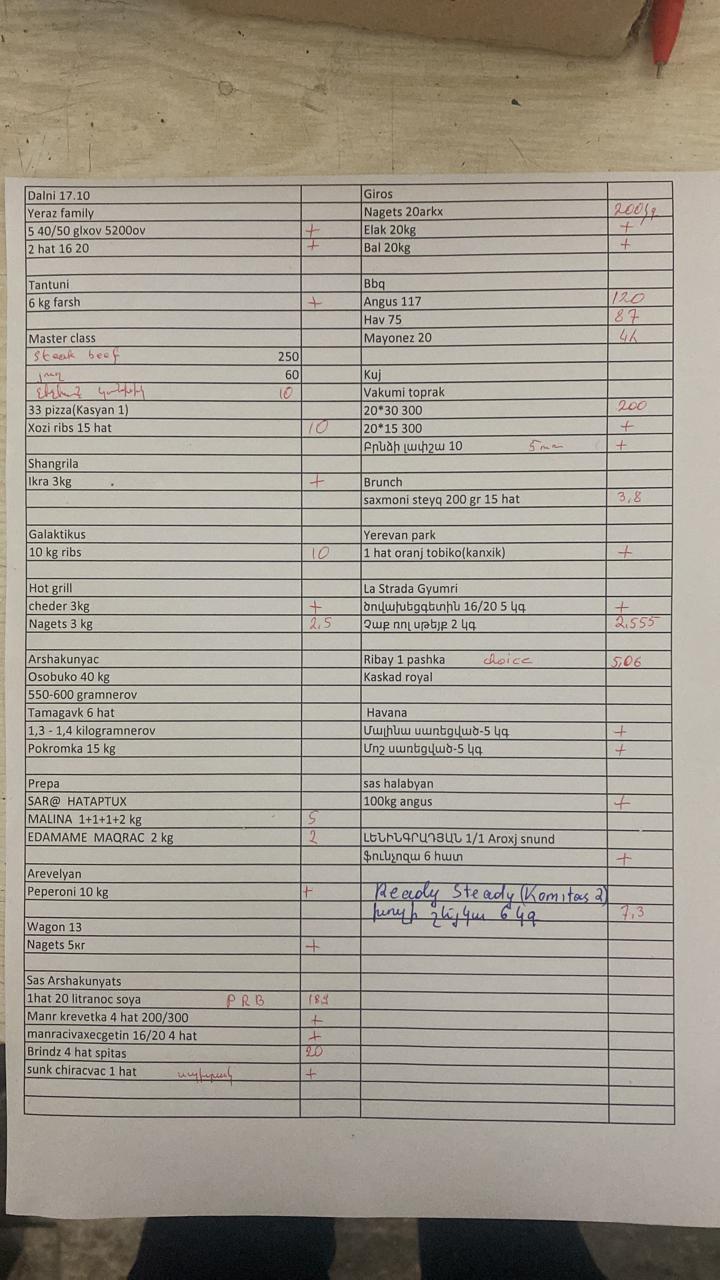 Dalni 17.10
Yeraz family
5 40/50 glxov 5200ov +
2 hat 16 20 +
Tantuni
6 kg farsh +
Master class
Steak beef 250
60
10
33 pizza(Kasyan 1)
Xozi ribs 15 hat 10
Shangrila
Ikra 3kg +
Galaktikus
10 kg ribs 10
Hot grill
cheder 3kg +
Nagets 3 kg 2,5
Arshakunyac
Osobuko 40 kg
550-600 gramnerov
Tamagavk 6 hat
1,3 - 1,4 kilogramnerov
Pokromka 15 kg
Prepa
SAR@ HATAPTUX
MALINA 1+1+1+2 kg 5
EDAMAME MAQRAC 2 kg 2
Arevelyan
Peperoni 10 kg +
Wagon 13
Nagets 5кг +
Sas Arshakunyats
1hat 20 litranoc soya PRB
Manr krevetka 4 hat 200/300 +
manracivaxecgetin 16/20 4 hat +
Brindz 4 hat spitas 20
sunk chiracvac 1 hat +
Giros
Nagets 20arkx
Elak 20kg +
Bal 20kg +
Bbq
Angus 117 120
Hav 75 87
Mayonez 20
Kuj
Vakumi toprak
20*30 300 200
20*15 300 +
Բրնձի լափշա 10 +
Brunch
saxmoni steyq 200 gr 15 hat 3,8
Yerevan park
1 hat oranj tobiko(kanxik) +
La Strada Gyumri
ծովախեցգետին 16/20 5 կգ +
Չաք ռոլ սթեյք 2 կգ 2,555
Ribay 1 pashka choice 5,06
Kaskad royal
Havana
Մալինա սառեցված-5 կգ +
Մոշ սառեցված-5 կգ +
sas halabyan
100kg angus +
ԼԵՆԻՆԳՐԱԴՅԱՆ 1/1 Aroxj snund
ֆունչոզա 6 հատ +
Ready Steady (Komitas 2)
խոզի շեյկա 6 կգ 7,3